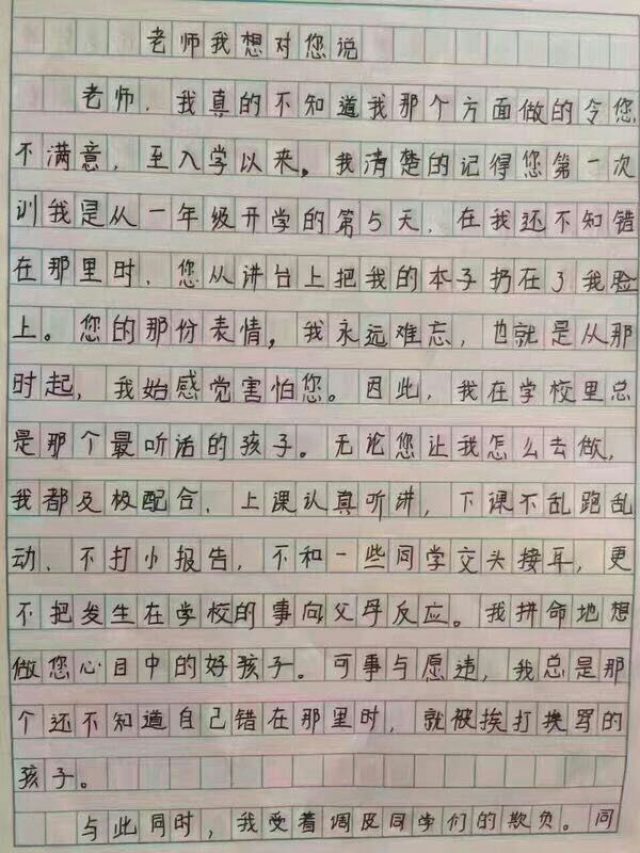 老师我想对您说
老师，我真的不知道我那个方面做的令您
不满意，至入学以来。我清楚的记得您第一次
训我是从一年级开学的第5天，在我还不知错
在那里时，您从讲台上把我的本子扔在了我脸
上。您的那份表情，我永远难忘，也就是从那
时起，我始感觉害怕您。因此，我在学校里总
是那个最听话的孩子。无论您让我怎么去做，
我都及极配合，上课认真听讲，下课不乱跑乱
动、不打小报告，不和一些同学交头接耳，更
不把发生在学校的事向父母反应。我拼命地想
做您心目中的好孩子。可事与愿违，我总是那
个还不知道自己错在那里时，就被挨打挨骂的
孩子。
与此同时，我受着调皮同学们的欺负。同